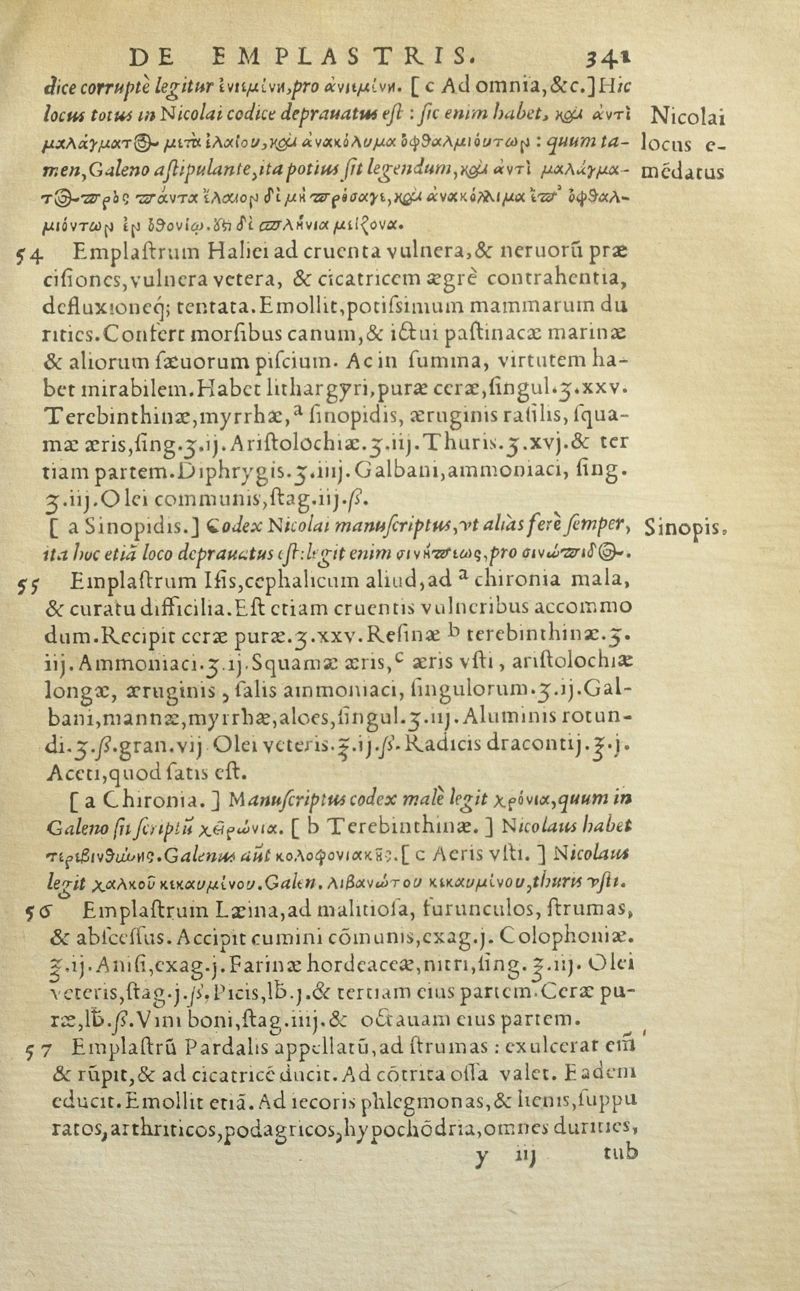 DE EMPLASTRIS. 341
dice corruptè legitur ἐνημένη, pro ἀνημένη. [ c Ad omnia, &c.] Hic
locus totus in Nicolai codice deprauatus est : sic enim habet, καὶ ἀντὶ Nicolai
μαλάγματος μετὰ ἐλαίου, καὶ ἀνακόλυμα ὀφθαλμιούτων : quum ta- locus e-
men, Galeno astipulante, ita potius sit legendum, καὶ ἀντὶ μαλάγμα- mēdatus
τος πρὸς πάντα ἐλαιον δὲ μὴ πρόσαγε, καὶ ἀνακόλλημα ἐπ' ὀφθαλ-
μιόντων ἐν ὀθονίῳ. ἔστι δὲ σπλήνια μείζονα.
54 Emplastrum Haliei ad cruenta vulnera, & neruorū præ
cisiones, vulnera vetera, & cicatricem ægrè contrahentia,
defluxioneq́; tentata. Emollit, potissimum mammarum du
rities. Confert morsibus canum, & ictui pastinacæ marinæ
& aliorum sæuorum piscium. Ac in summa, virtutem ha-
bet mirabilem. Habet lithargyri, puræ ceræ, singul. ʒ. xxv.
Terebinthinæ, myrrhæ, ᵃ sinopidis, æruginis rasilis, squa-
mæ æris, sing. ʒ. ij. Aristolochiæ. ʒ. iij. Thuris. ʒ. xvj. & ter
tiam partem. Diphrygis. ʒ. iiij. Galbani, ammoniaci, sing.
ʒ. iij. Olei communis, stag. iij. ß.
[ a Sinopidis.] Codex Nicolai manuscriptus, vt aliàs ferè semper, Sinopis.
ita hoc etiā loco deprauatus est: legit enim σινήπεως, pro σινώπιδος.
55 Emplastrum Isis, cephalicum aliud, ad ᵃ chironia mala,
& curatu difficilia. Est etiam cruentis vulneribus accommo
dum. Recipit ceræ puræ. ʒ. xxv. Resinæ ᵇ terebinthinæ. ʒ.
iij. Ammoniaci. ʒ. ij. Squamæ æris, ᶜ æris vsti, aristolochiæ
longæ, æruginis, salis ammoniaci, singulorum. ʒ. ij. Gal-
bani, mannæ, myrrhæ, aloes, singul. ʒ. iij. Aluminis rotun-
di. ʒ. ß. gran. vij Olei veteris. ℥. ij. ß. Radicis dracontij. ℥. j.
Aceti, quod satis est.
[ a Chironia. ] Manuscriptus codex malè legit χρόνια, quum in
Galeno sit scriptū χειρώνια. [ b Terebinthinæ. ] Nicolaus habet
τερεβινθίνης. Galenus aūt κολοφονιακῆς. [ c Aeris vsti. ] Nicolaus
legit χαλκοῦ κεκαυμένου. Galen. λιβανωτοῦ κεκαυμένου, thuris vsti.
56 Emplastrum Læina, ad malitiosa, furunculos, strumas,
& abscessus. Accipit cumini cōmunis, exag. j. Colophoniæ.
℥. ij. Anisi, exag. j. Farinæ hordeaceæ, nitri, sing. ℥. iij. Olei
veteris, stag. j. ß. Picis, lb. j. & tertiam eius partem. Ceræ pu-
ræ, lb. ß. Vini boni, stag. iiij. & octauam eius partem.
57 Emplastrū Pardalis appellatū, ad strumas : exulcerat em̄
& rūpit, & ad cicatricē ducit. Ad cōtrita ossa valet. Eadem
educit. Emollit etiā. Ad iecoris phlegmonas, & lienis, suppu
ratos, arthriticos, podagricos, hypochōdria, omnes durities,
y iij tub